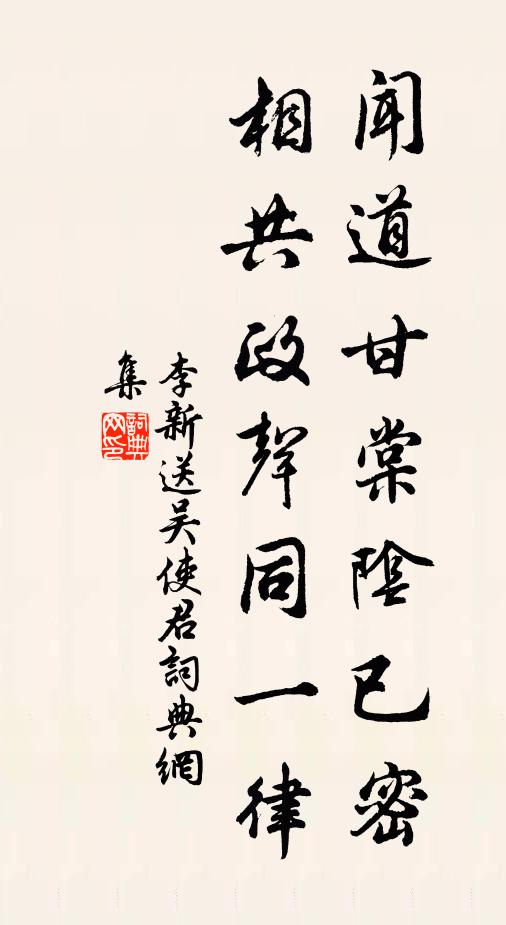 闻道甘棠陰已密
相共政聲同一律
李新送吴使君詞典網
集
詞典网印